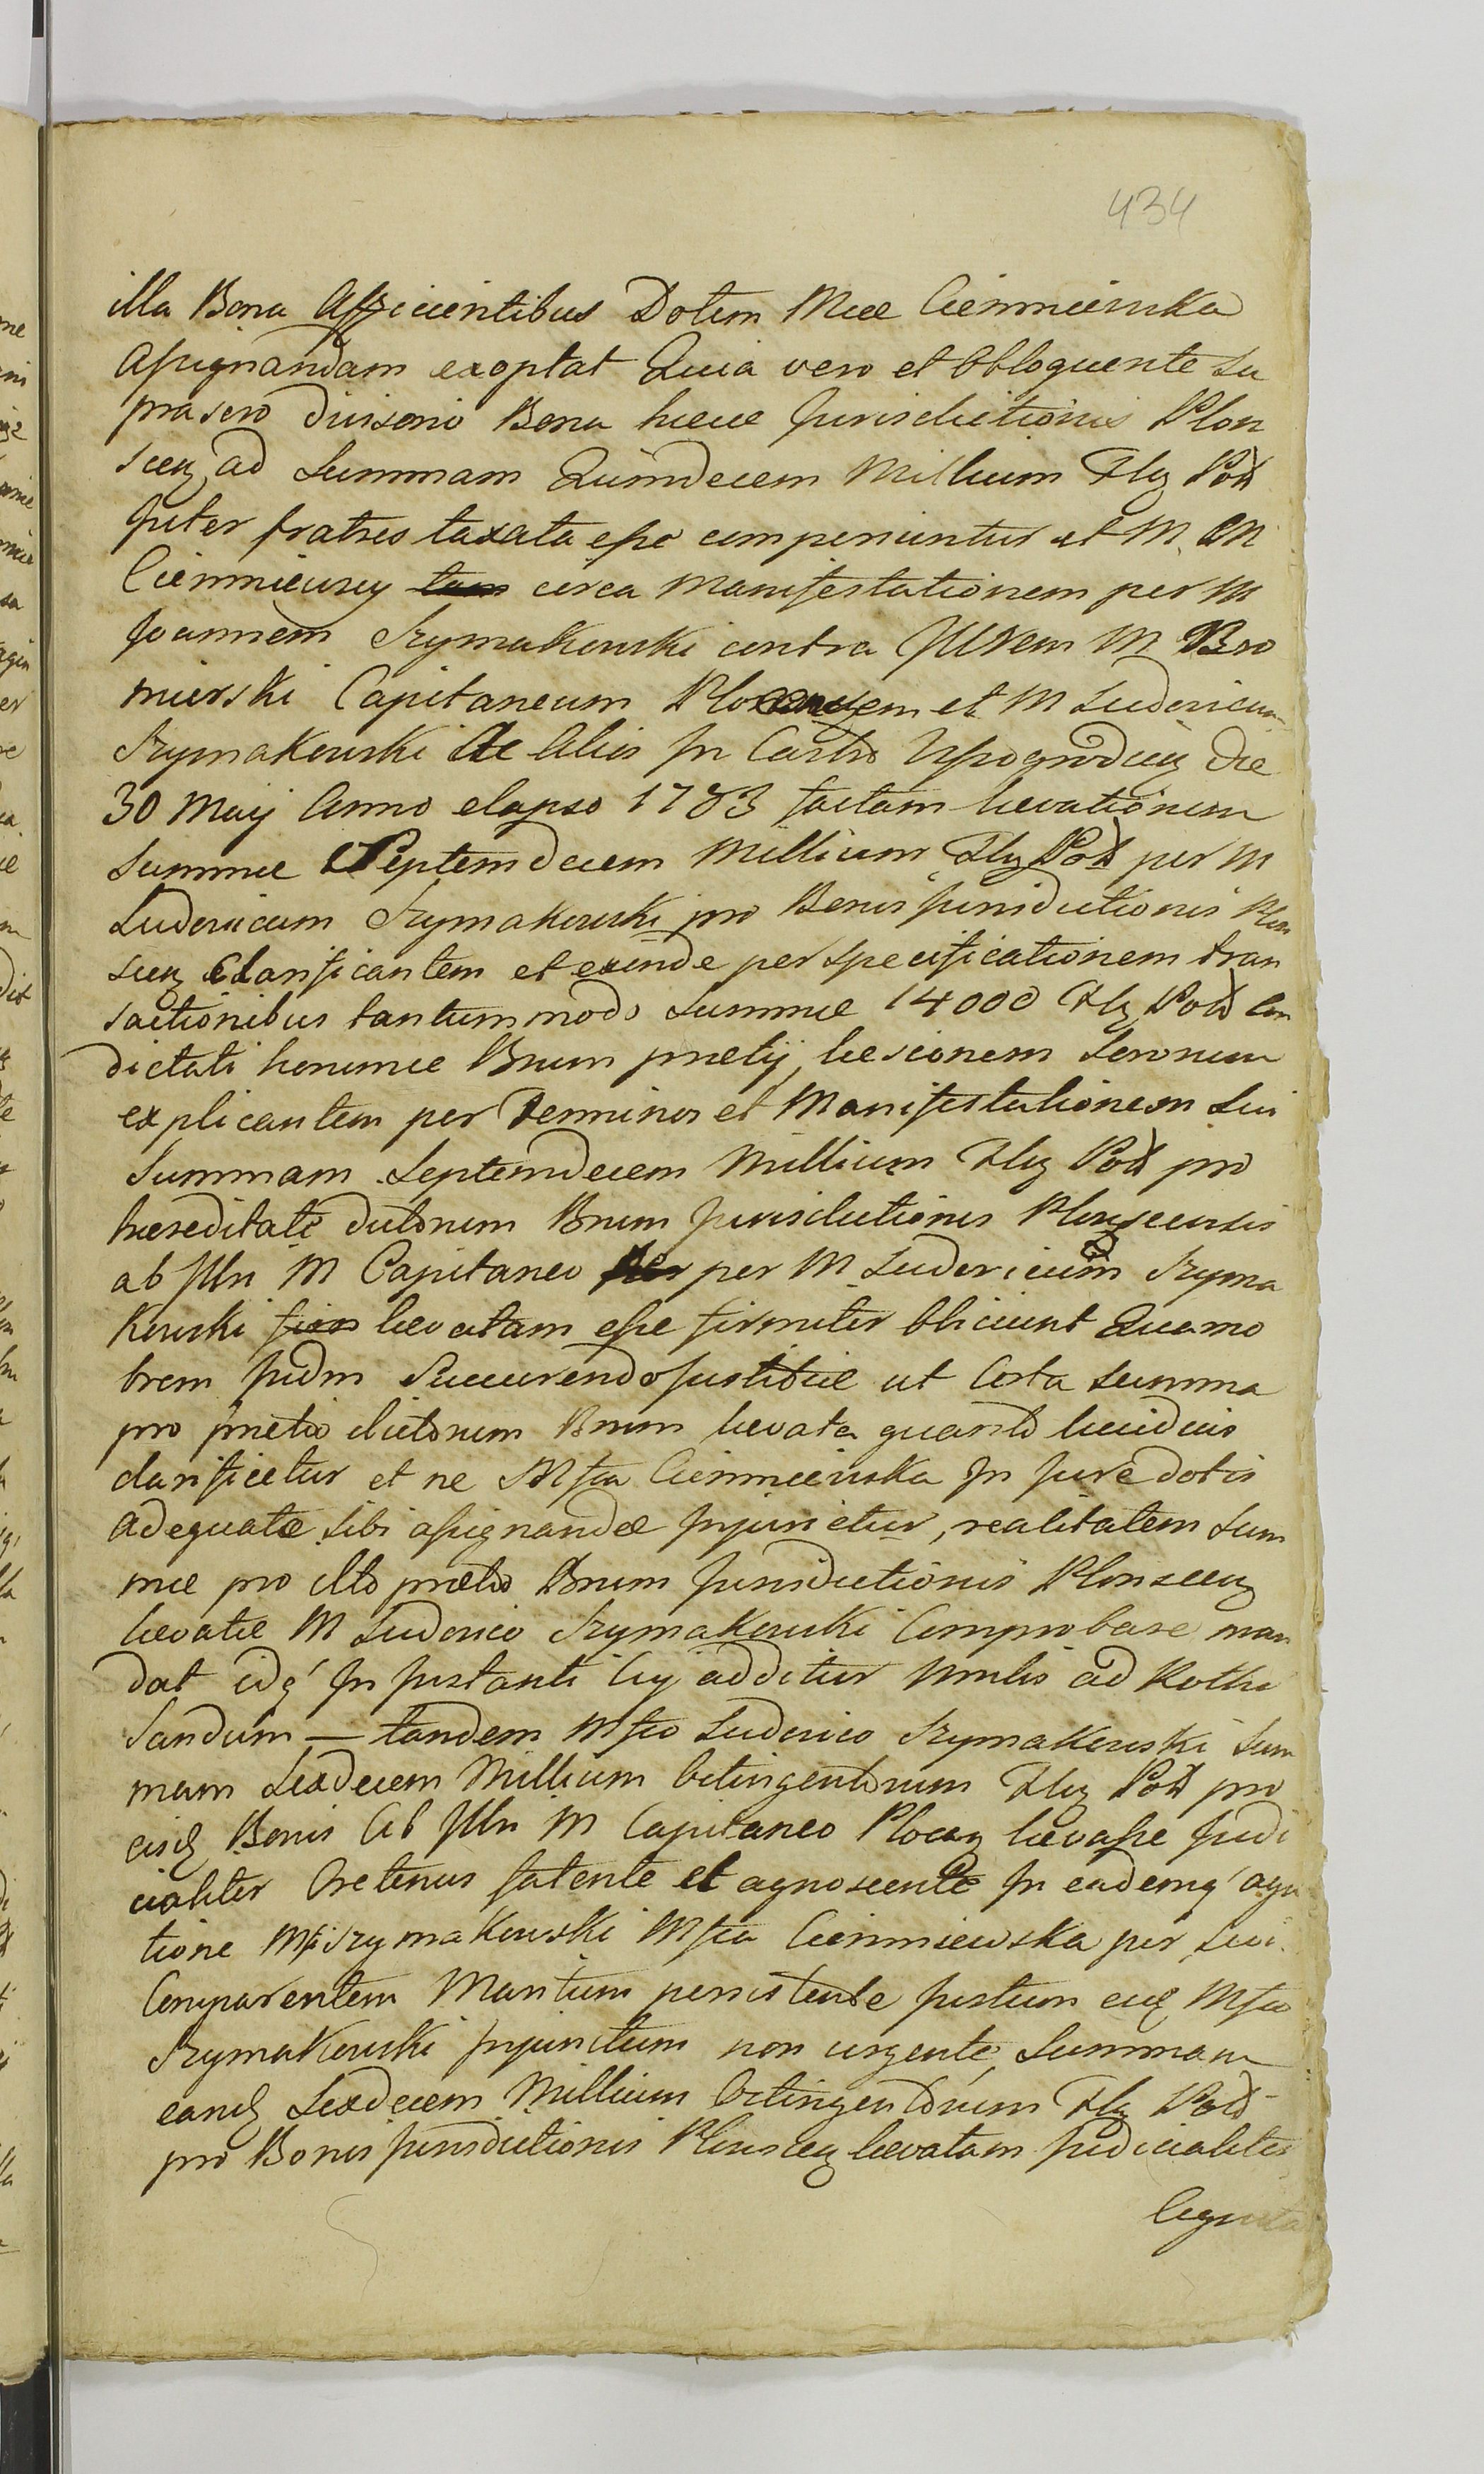 434
illa Bona Afficientibus Dotem Mcae Ciemniewska
Assignandam exoptat Quia vero et Obloquente su
prascro Divisorio Bona haece Jurisdictionis Plon
scen ad Summam Quindecem Millium Flg Pold
Inter fratres taxata esse comperiuntur et M. M
Ciemniewscy circa Manifestationem per M
Joannem Szymakowski contra M Bro
mierski Capitaneum et M Ludovicum
Szymakowski Ac Alios In Castro Wyssogrodien Die
30 Maij Anno elapso 1783 factam levationem
Summae Septemdecem Millium Flg Pold per M
Ludovicum Szymakowski pro Bonis Jurisdictionis Plon
scen Clarificantem et exinde per specificationem tran
sactionibus tantummodo Summae 14000 Flg Pold Con
dictati horumce Bnum pretij, laesionem Sororum
explicantem per Terminos et Manifestationem Sui
Summam Septemdecem Millium Flg Pold pro
haereditate dictorum Bnum Jurisdictionis Plonscensis
ab Illri M Capitaneo per M Ludovicum Szyma
kowski levatam esse firmiter Obiiciunt Quamo
brem Judm Succurendo Justitiae ut Certa Summa
pro pretio dictorum Bnum levata quanto lucidius
clarificetur et ne Mfca Ciemniewska In Jure dotis
Adequatae sibi assignandae Injurietur, realitatem Sum
mae pro illo praetio Bnum Jurisdictionis Plonscen
levatae M Ludovico Szymakowski Comprobare man
dat idq' In Instanti Cui additur Mnlis ad Rotha
Sandum — tandem Mfco Ludovico Szymakowski Sum
mam Sexdecem Millium Octingentorum Flg Pold pro
eisd Bonis Ab Illri M Capitaneo Plocen levasse Judi
cialiter Oretenus fatente et agnoscente In eademq' agni
tione Mf Szymakowski Mfca Ciemniewska per Sui
Comparentem Maritum persistente Mfco
Szymakowski Injunctum non urgente Summam
eand Sexdecem Millium Octingentorum Flg Pold
pro Bonis Jurisdictionis Plonscen levatam Judicialiter